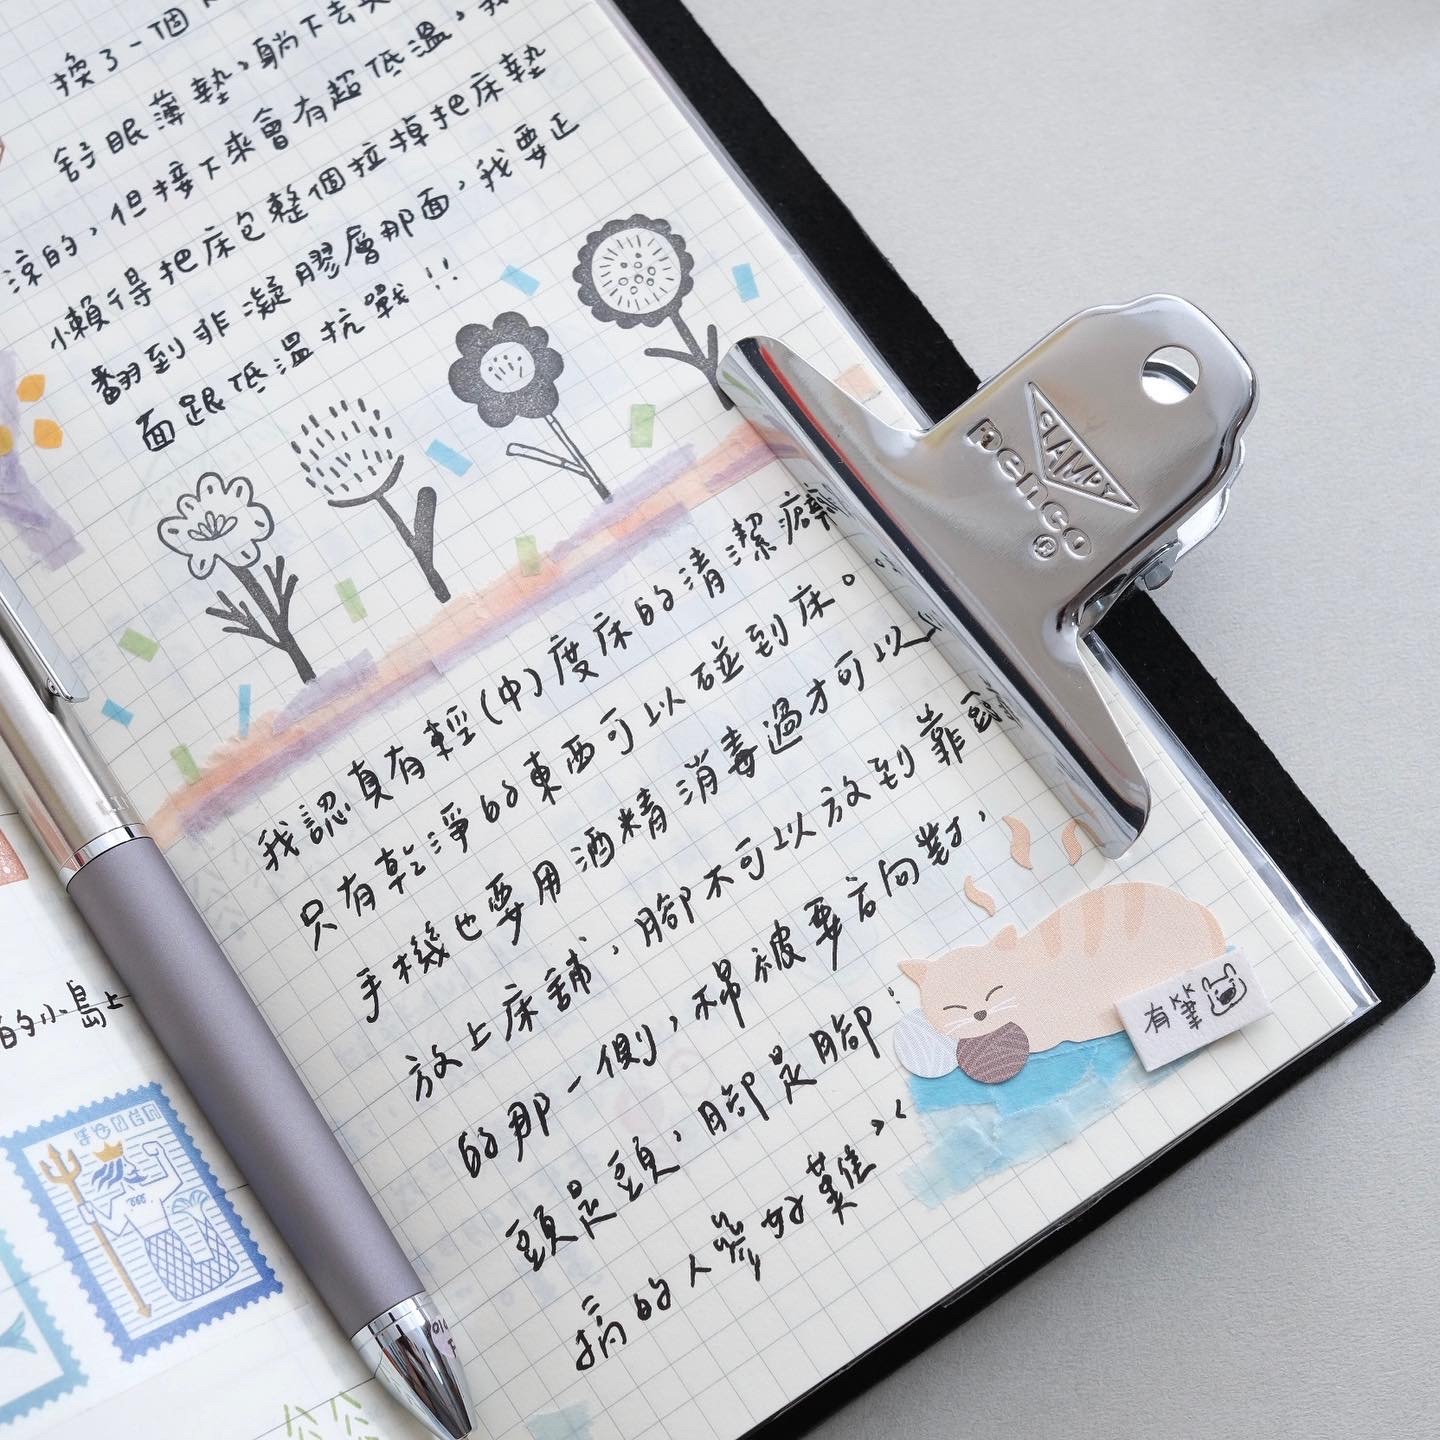 換了一個
舒眠薄墊，躺下去
涼的，但接下來會有超低溫，
懶得把床包整個拉掉把床墊
翻到非凝膠層那面，我要正
面跟低溫抗戰！！
我認真有輕(中)度床的清潔癖
只有乾淨的東西可以碰到床。
手機也要用酒精消毒過才可以
放上床舖，腳不可以放到靠頭
的那一側，棉被要方向對，
頭是頭，腳是腳！
搞的人蔘好難>.<
有筆
的小島上
CLAMPY
penco
®